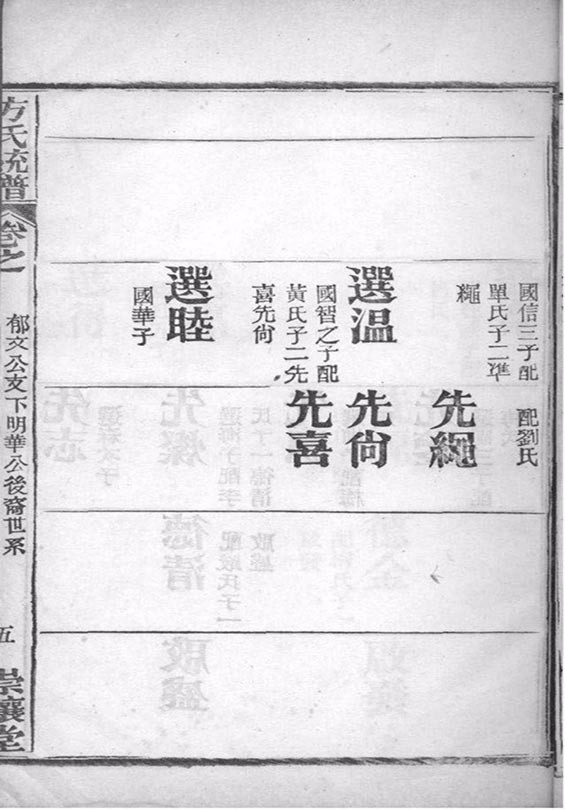 國信三子配
單氏子二準
繩
選溫
國智之子配
黃氏子二先
喜先尙
選睦
國華子
配劉氏
先繩
先尙
先喜
方氏統譜
卷之
郁文公支下明華公後裔世系
五
崇讓堂